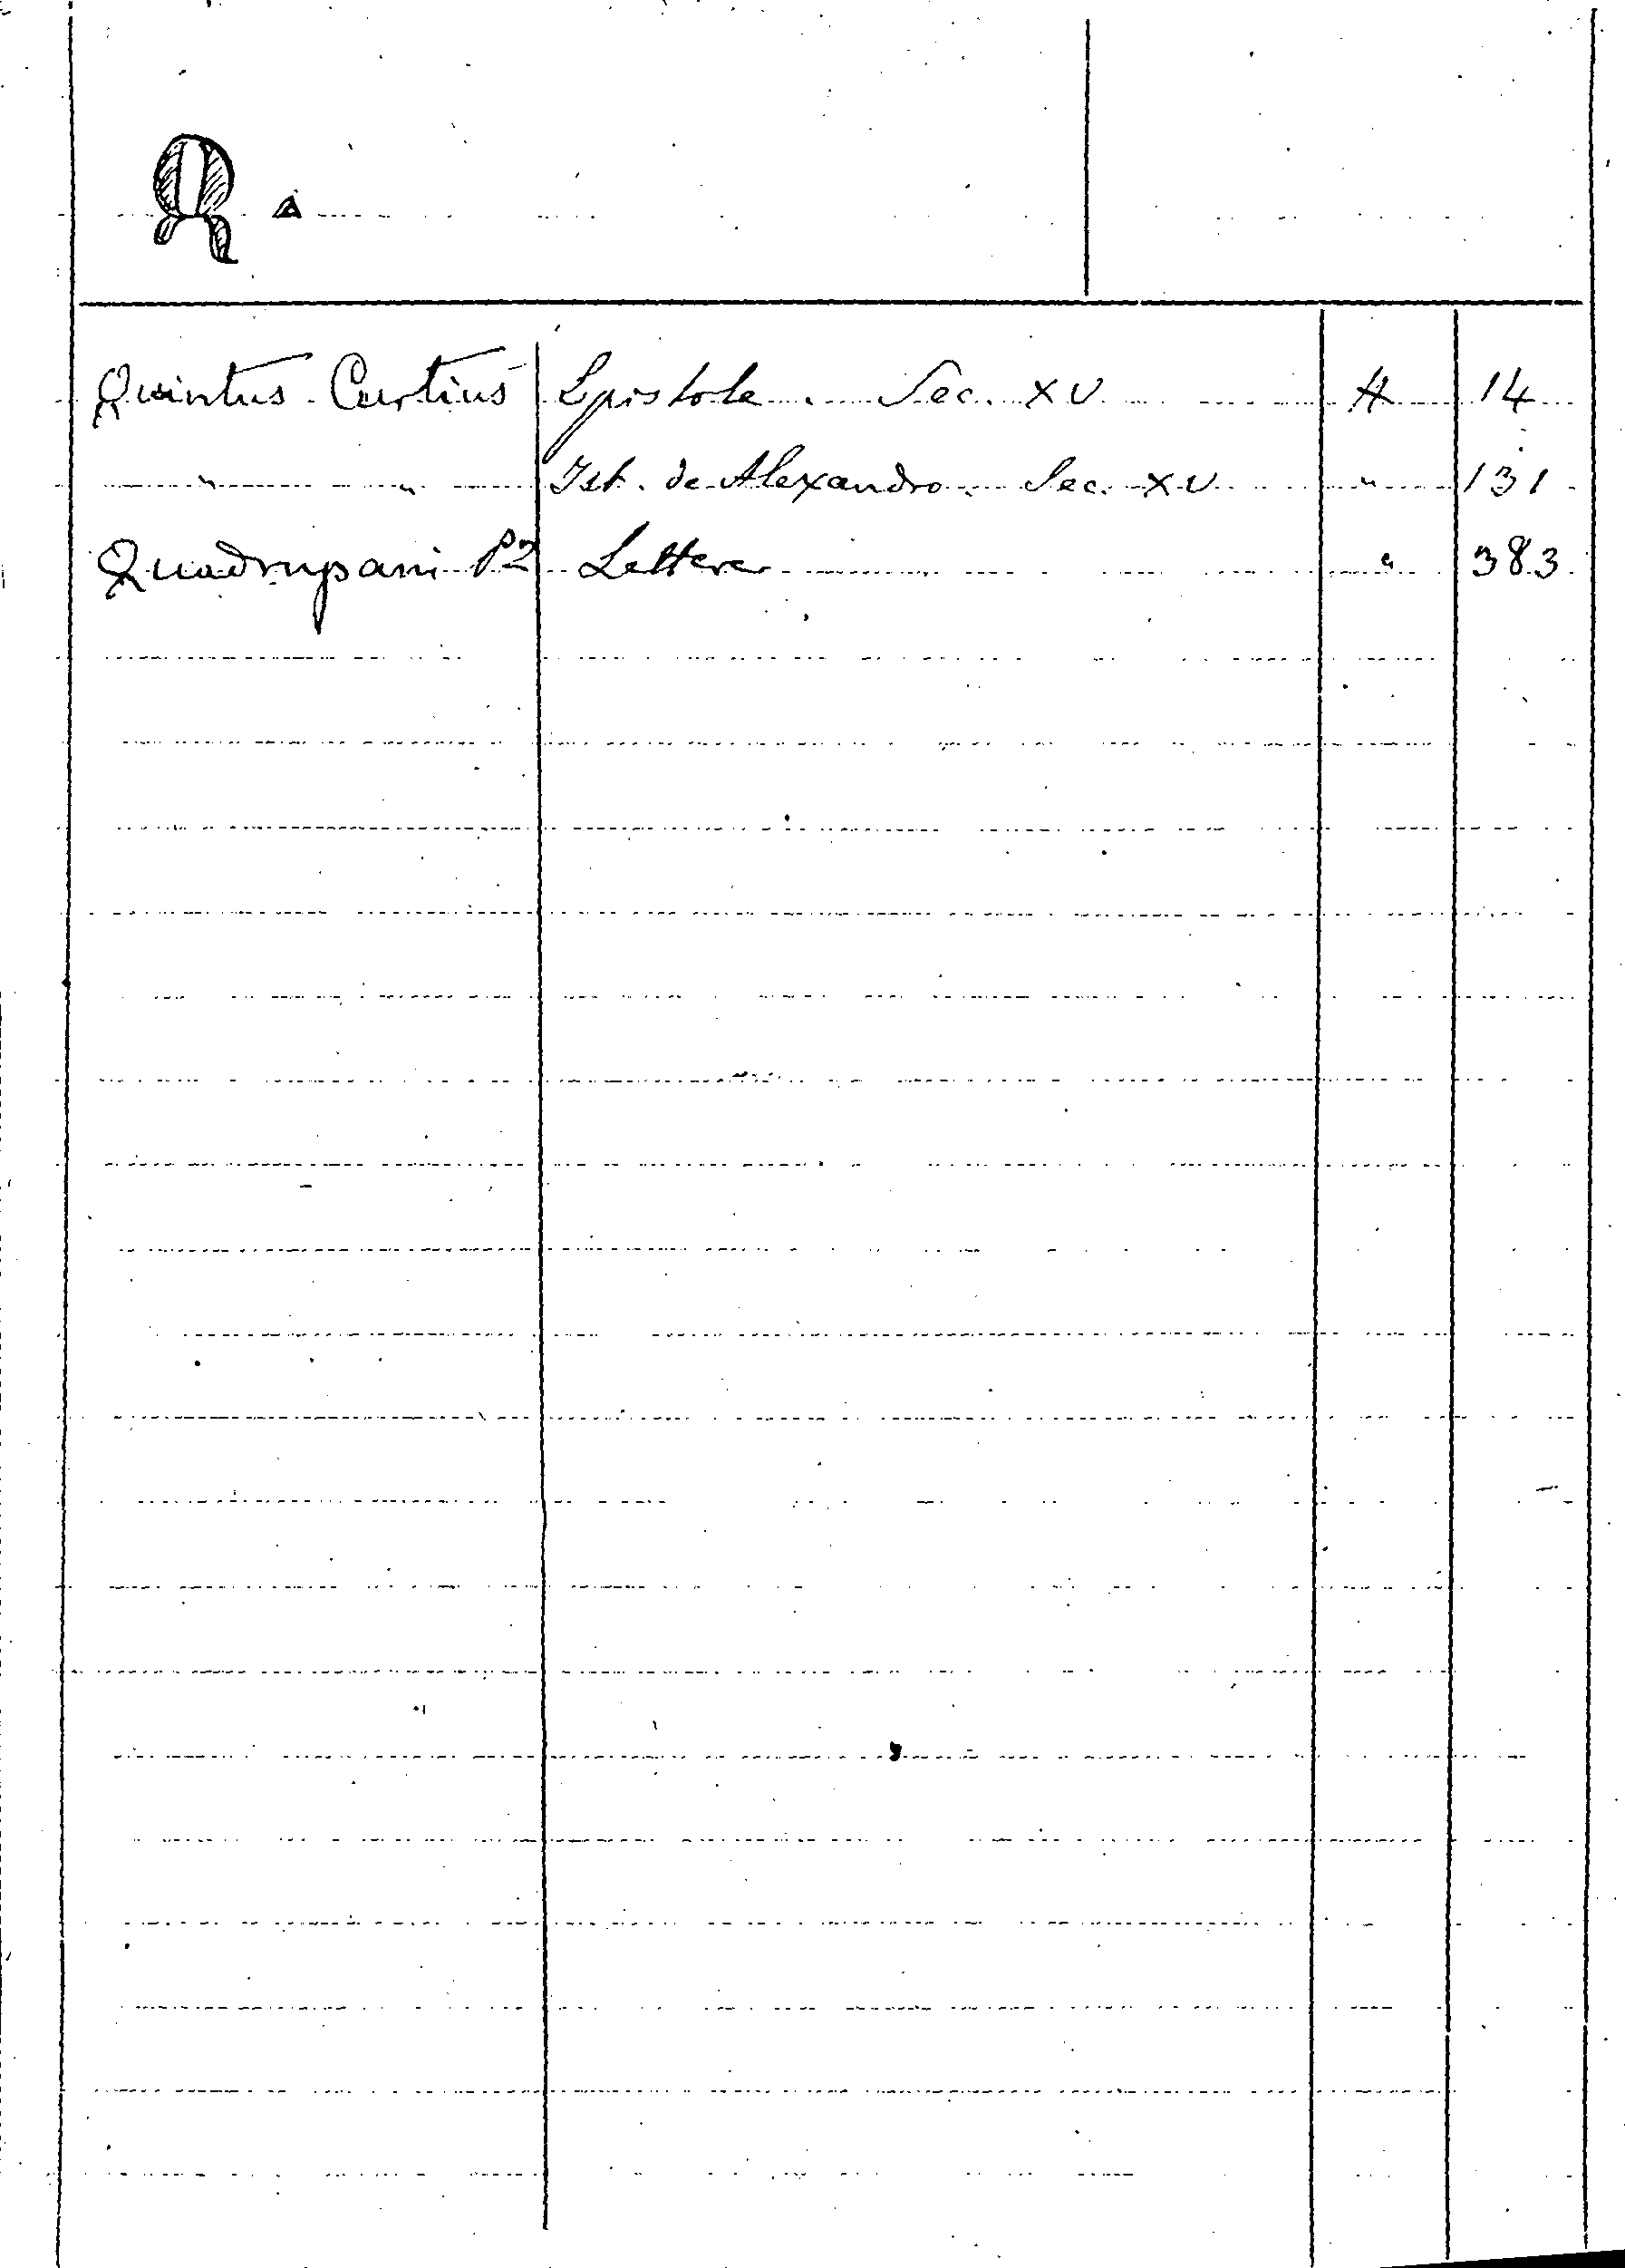 Q.
Quintus Curtius Epistole. Sec. XV. A 14
" " Ist. de Alexandro. Sec. XV " 131
Quadrupani Lettere " 383